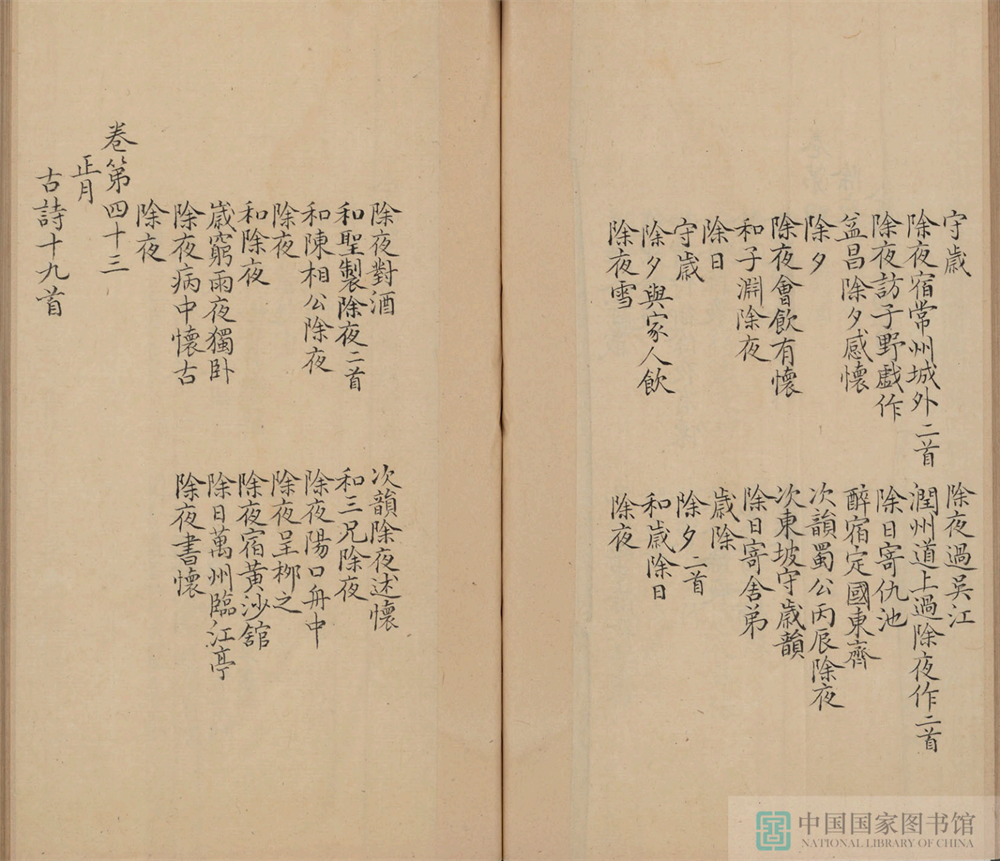 守歲
除夜過吳江
除夜宿常州城外二首
潤州道上過除夜作二首
除夜訪子野戲作
除日寄仇池
益昌除夕感懷
醉宿定國東齊
除夕
次韻蜀公丙辰除夜
除夜會飲有懷
次東坡守歲韻
和子淵除夜
除日寄舍弟
除日
歲除
守歲
除夕二首
除夕與家人飲
和歲除日
除夜雪
除夜
除夜對酒
次韻除夜述懷
和聖製除夜二首
和三兄除夜
和陳相公除夜
除夜陽口舟中
除夜
除夜呈柳之
和除夜
除夜宿黃沙舘
歲窮雨夜獨卧
除日萬州臨江亭
除夜病中懷古
除夜書懷
除夜
卷第四十三
正月
古詩十九首
中国国家图书馆
NATIONAL LIBRARY OF CHINA